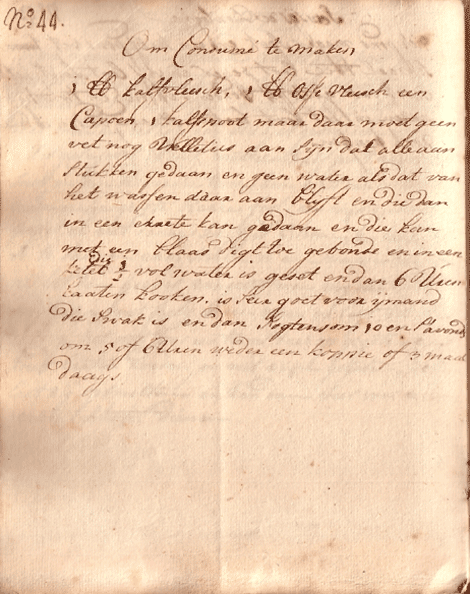 No 44.
Om Consumé te maken
1 ℔ kalfvleesch, 1 ℔ Osse vleesch een
Capoen 1 kalfspoot maar daar moet geen
vet nog velletus aan sijn dat alle aan
stukken gedaan en geen water als dat van
het wassen daar aan blijft en die dan
in een kan gedaan en die kan
met een blaas digt toe gebonde en in een
ketel die ¾ vol water is geset en dan 6 Uren
laaten kooken, is seer goet voor ijmand
die swak is en dan om 10 en s'avonds
om 5 of 6 Uren weder een koppie of 3 maal
daags